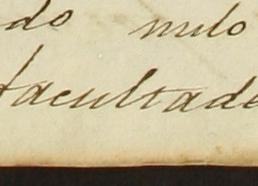 do nulo
facultade